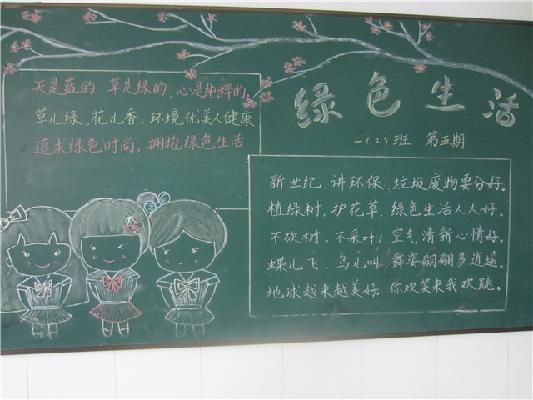 天是蓝的 草是绿的, 心是纯粹的,
草儿绿, 花儿香, 环境优美人健康
追求绿色时尚, 拥抱绿色生活
绿色生活
一(2)班 第五期
新世纪, 讲环保, 垃圾废物要分好。
植绿树, 护花草, 绿色生活人人好。
不砍树, 不采叶, 空气清新心情好。
蝶儿飞, 鸟儿叫, 舞姿翩翩多逍遥。
地球越来越美好, 你欢笑来我欢跳。